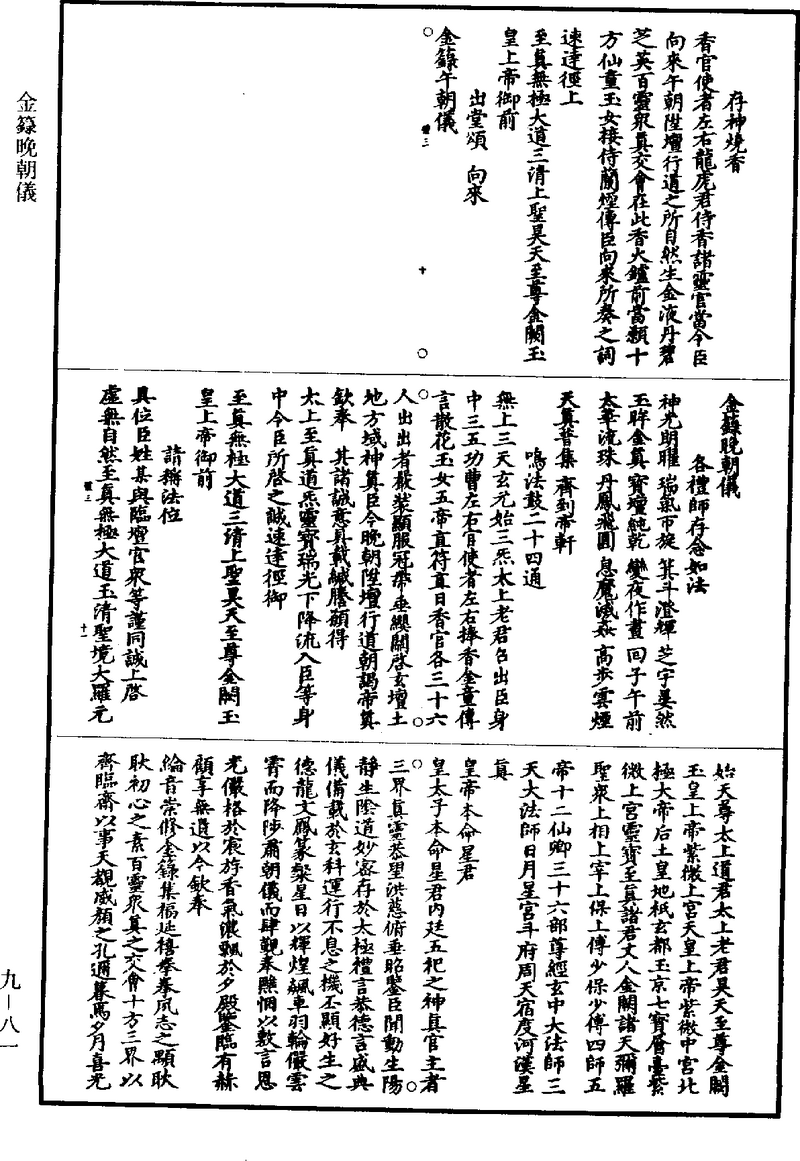 存神燒香
香官使者左右龍虎君侍香諸靈官當令臣
向來午朝陞壇行道之所自然生金液丹碧
芝英百靈眾真交會在此香火鑪前當願十
方仙童玉女接侍蘭煙傳臣向來所奏之詞
速達徑上
至真無極大道三清上聖昊天至尊金闕玉
皇上帝御前
出堂頌 向來
金籙午朝儀
體三
十
金籙晚朝儀
各禮師存念如法
神光明曜 瑞氣帀旋 箕斗澄輝 芝宇晏然
玉眸金真 寶壇純乾 變夜作晝 回子午前
太華流珠 丹鳳飛圓 息魔滅姦 高步雲煙
天真普集 齊到帝軒
鳴法鼓二十四通
無上三天玄元始三炁太上老君召出臣身
中三五功曹左右官使者左右捧香金童傳
言散花玉女五帝直符直日香官各三十六
人出出者嚴裝顯服冠帶垂纓關啓玄壇土
地方域神真臣今晚朝陞壇行道朝謁帝真
欽奉 其諸誠意具載緘謄願得
太上至真道炁靈寶瑞光下降流入臣等身
中令臣所啓之誠速達徑御
至真無極大道三清上聖昊天至尊金闕玉
皇上帝御前
請稱法位
具位臣姓某與臨壇官眾等謹同誠上啓
虛無自然至真無極大道玉清聖境大羅元
體三
十一
始天尊太上道君太上老君昊天至尊金闕
玉皇上帝紫微上宮天皇上帝紫微中宮北
極大帝后土皇地祇玄都玉京七寶層臺紫
微上宮靈寶至真諸君丈人金闕諸天彌羅
聖眾上相上宰上保上傅少保少傅四師五
帝十二仙卿三十六部尊經玄中大法師三
天大法師日月星宮斗府周天宿度河漢星
真
皇帝本命星君
皇太子本命星君內廷五祀之神真官主者
三界真靈恭望洪慈俯垂昭鑒臣聞動生陽
靜生陰道妙密存於太極禮言恭德言盛典
儀備載於玄科運行不息之機丕顯好生之
德龍文鳳篆粲星日以輝煌飆車羽輪儼雲
霄而降陟肅朝儀而肆覲奉瞻悃以敷言恩
光儼格於宸旂香氣濃飄於夕殿鑒臨有赫
顧享無遺以今欽奉
綸音崇修金籙集福延禧拳拳夙志之顯耿
耿初心之素百靈眾真之交會十方三界以
齊臨齋以事天觀威顏之孔邇暮焉夕月喜光
金籙晚朝儀
九－八一